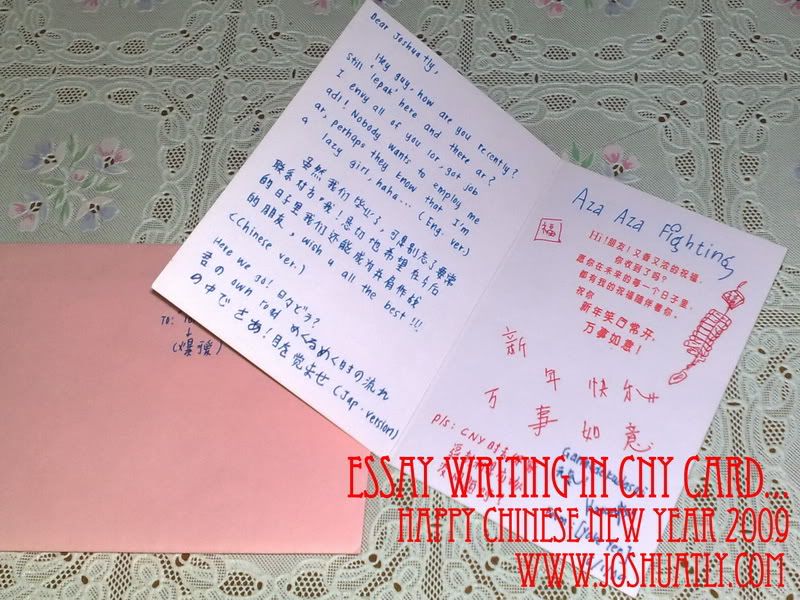 Dear Joshuatly,
Hey guy, how are you recently?
Still 'lepak' here and there ar?
I envy all of you lor, got job
adi! Nobody wants to employ me
ar, perhaps they know that I'm
a lazy girl, haha... (Eng. ver.)
虽然我们毕业了，可是别忘了要常
联系对方"哦！恳切地希望在今后
的日子里我们还能成为并肩作战
的朋友。Wish u all the best !!!
(Chinese ver.)
Here we go! 日々どう?
君の own road めくるめく日の流れ
の中で さあ！目を覚ませ (Jap. version)
TO:
(爆弹)
Aza Aza Fighting
福
Hi!朋友!又香又浓的祝福,
你收到了吗?
愿你在未来的每一个日子里,
都有我的祝福随伴着你。
祝你
新年笑口常开,
万事如意!
新年快乐
万事如意
p/s: CNY 时
ESSAY WRITING IN CNY CARD...
HAPPY CHINESE NEW YEAR 2009
WWW.JOSHUATLY.COM